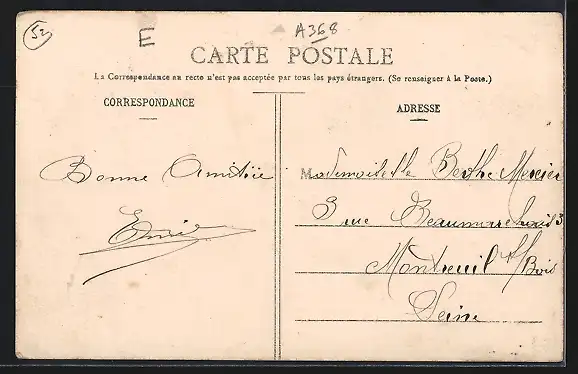 52
E
A368
CARTE POSTALE
La Correspondance au recto n'est pas acceptée par tous les pays étrangers. (Se renseigner à la Poste.)
CORRESPONDANCE
Bonne Amitiie
Emie
ADRESSE
Mademoiselle Berthe Mercier
3 rue Beaumarchais 3
Montreuil s/ Bois
Seine